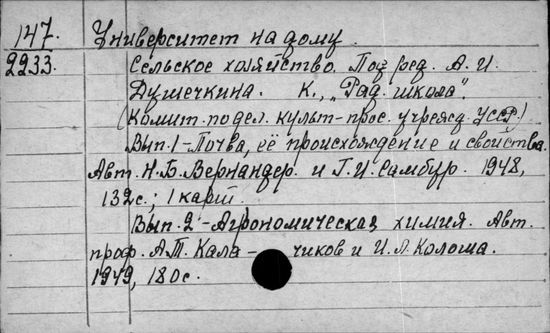 147. Университет на дому.
2233. Сельское хозяйство. Под ред. А. И.
Душечкина. К., "Рад. школа".
(Комит. по дел. культ-прос. учрежд УССР.)
Вып. 1-Почва, её происхождение и свойства.
Авт. Н.Б. Вернандер. и Г.И. Самбур. 1948,
132с.; 1 карт.
Вып. 2-Агрономическая химия. Авт.
проф. А.Т. Кала - чиков и И.Л. Колоша.
1949, 180с.